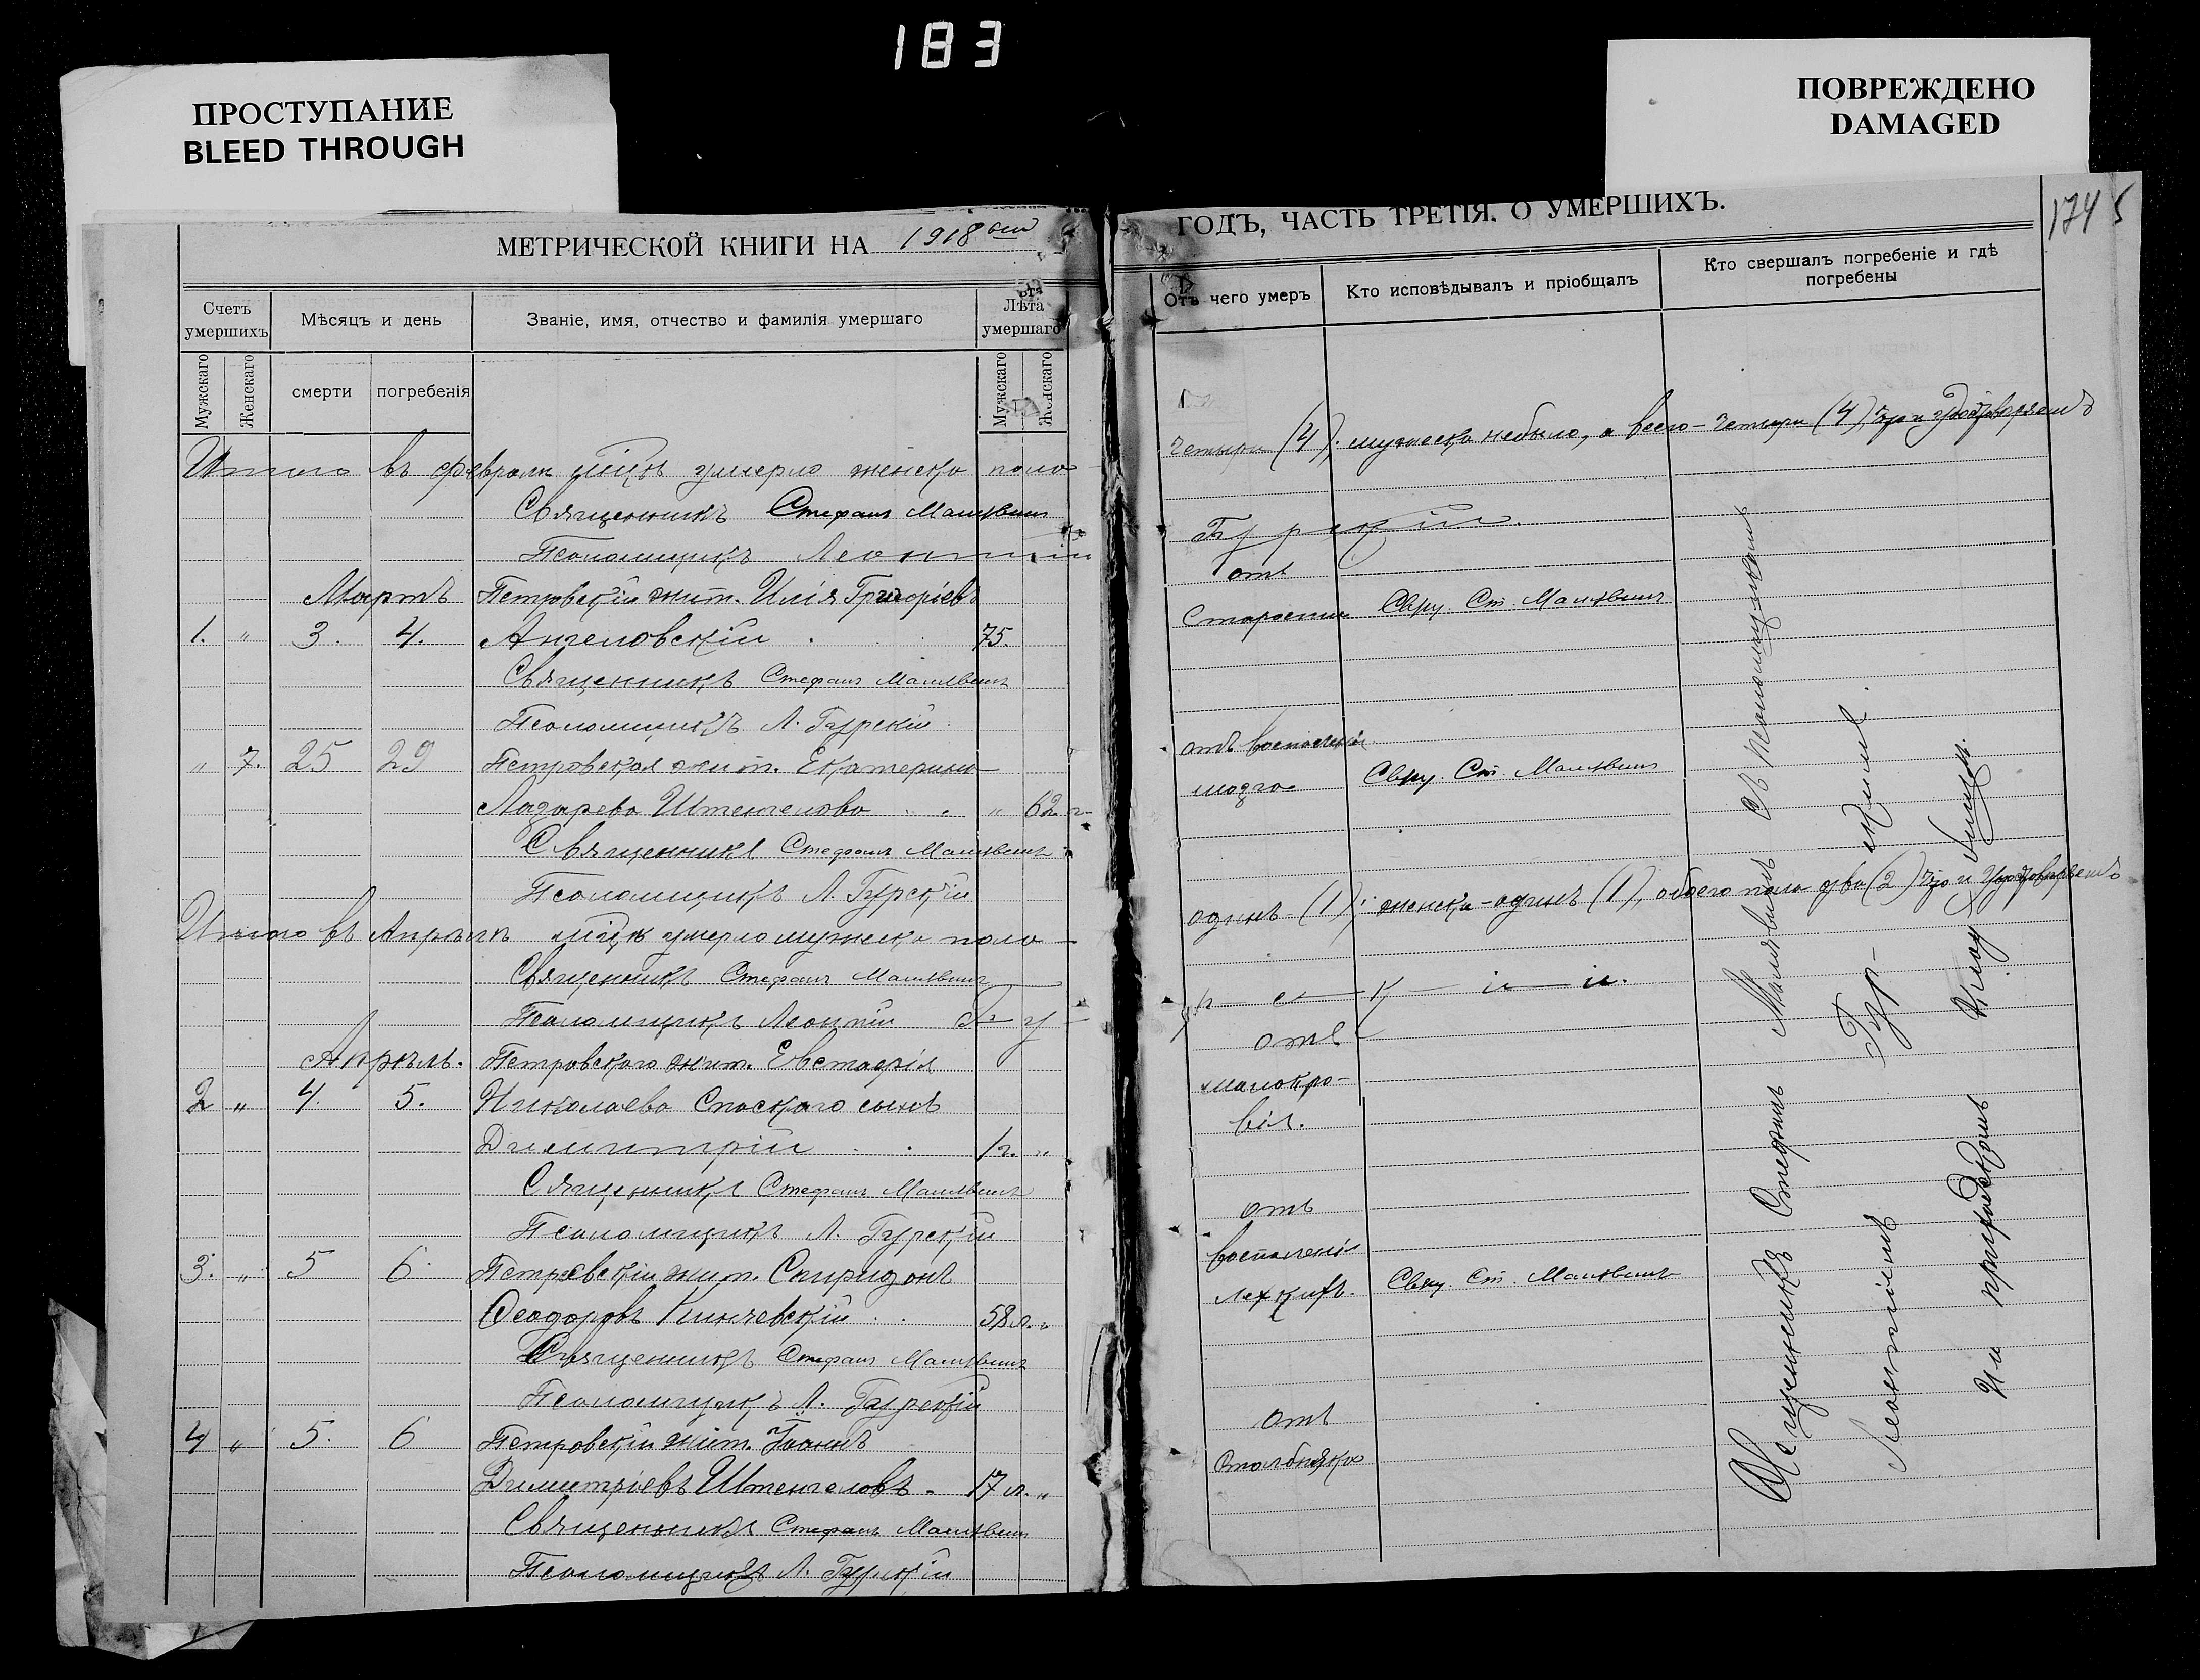 183
ПРОСТУПАНИЕ
BLEED THROUGH
ПОВРЕЖДЕНО
DAMAGED
174 5
МЕТРИЧЕСКОЙ КНИГИ НА 1918
ГОДЪ, ЧАСТЬ ТРЕТІЯ. О УМЕРШИХЪ.
Счетъ умершихъ
Мѣсяцъ и день
Званіе, имя, отчество и фамилія умершаго
Лѣта умершаго
Отъ чего умеръ
Кто исповѣдывалъ и пріобщалъ
Кто свершалъ погребеніе и гдѣ погребены
Мужскаго
Женскаго
смерти
погребенія
Мужскаго
Женскаго
Итого въ февралѣ умерло женска пола
четыри (4). мужеска небыло, а всего - четыри (4),
Священникъ Стефанъ
Псаломщикъ Леонтій
Гурскій.
Мартъ Петровскій жит. Илія Григоріевъ
отъ
1. " 3. 4. Ангеловскій 75.
старости Ст.
Священникъ Стефанъ
Псаломщикъ Л. Гурскій
отъ воспаленія
" 7. 25 29 Петровская жит. Екатерина
мозга Ст.
Лазарева Штенгелова " 62 г.
Священникъ Стефанъ
Псаломщикъ Л. Гурскій
Итого въ Апрѣлѣ умерло мужска пола
одинъ (1); женска - одинъ (1), обоего пола два (2)
Священникъ Стефанъ
Псаломщикъ Леонтій Гу
р с к і й.
Апрѣль. Петровскаго жит. Евстафія
отъ
2 " 4. 5. Николаева Спаскаго сынъ
малокро-
Димитрій 1 г. "
вія.
Священникъ Стефанъ
Псаломщикъ Л. Гурскій
отъ
3. " 5 6. Петровскій жит. Спиридонъ
воспаленія
легкихъ. Ст.
Феодоровъ Кинчевскій 58 л. "
Священникъ Стефанъ
Псаломщикъ Л. Гурскій
4 " 5. 6 Петровскій жит. Іоаннъ
отъ
Димитріевъ Штенгеловъ. 17 л. "
столбняка
Священникъ Стефанъ
Псаломщикъ Л. Гурскій
Священникъ Стефанъ съ псаломщикомъ
Леонтіемъ Гурскимъ
на приходскомъ кладбищѣ.